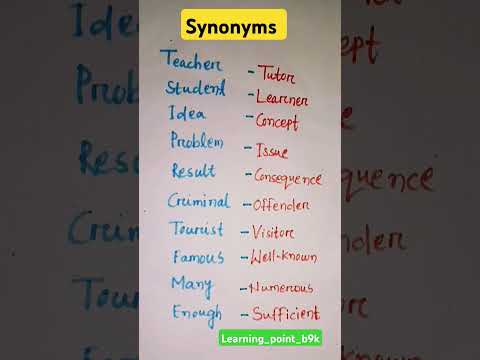 Synonyms
Teacher - Tutor
Student - Learner
Idea - Concept
Problem - Issue
Result - Consequence
Criminal - Offender
Tourist - Visitor
Famous - Well-known
Many - Numerous
Enough - Sufficient
Learning_point_b9k